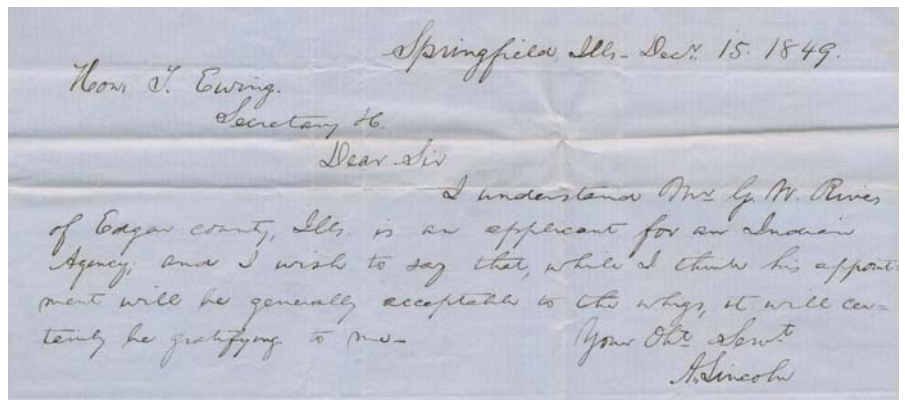 Springfield, Ills. Decr. 15. 1849.
Hon: T. Ewing.
Secretary &c.
Dear Sir
I understand Mr. G. W. Rives
of Edgar county, Ills. is an applicant for an Indian
Agency; and I wish to say that, while I think his appoint-
ment will be generally acceptable to the whigs, it will cer-
tainly be gratifying to me-
Your Obt. Servt.
A. Lincoln